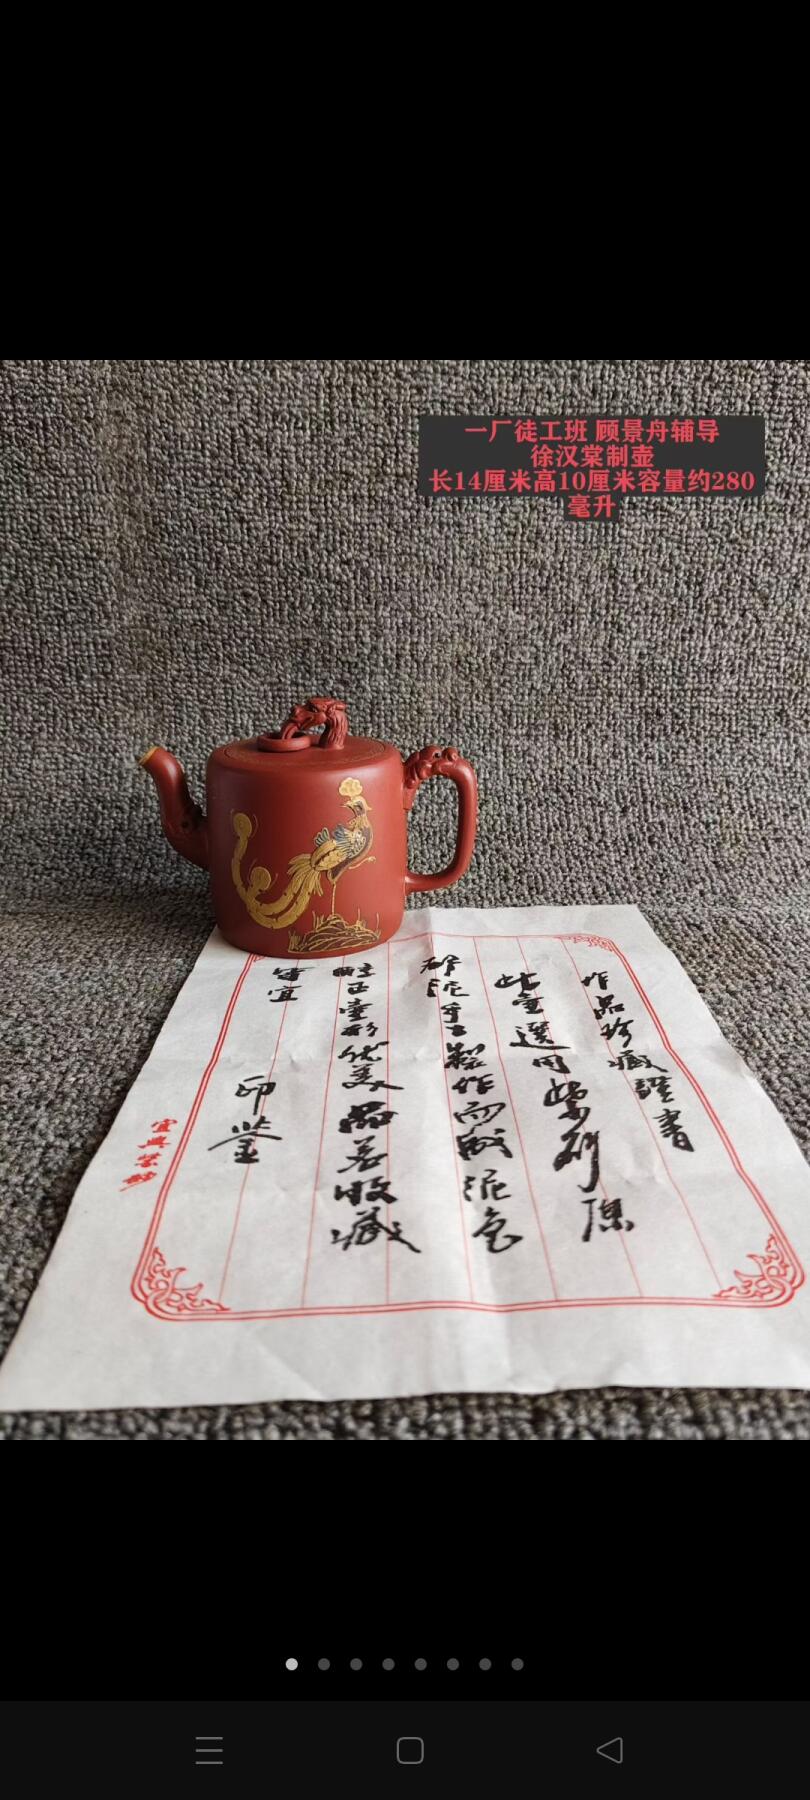 一厂徒工班 顾景舟辅导
徐汉棠制壶
长14厘米高10厘米容量约280
毫升
作品珍藏證書
此壶選用紫砂原
矿泥手工製作而成泥色
純正壶形优美品茗收藏
皆宜
印鉴
宜興紫砂